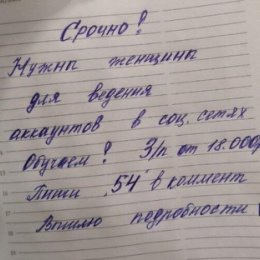 Срочно!
Нужны женщины
для ведения
аккаунтов в соц. сетях
Обучаем! З/п от 18.000
Пиши "54" в коммент
Вышлю подробности